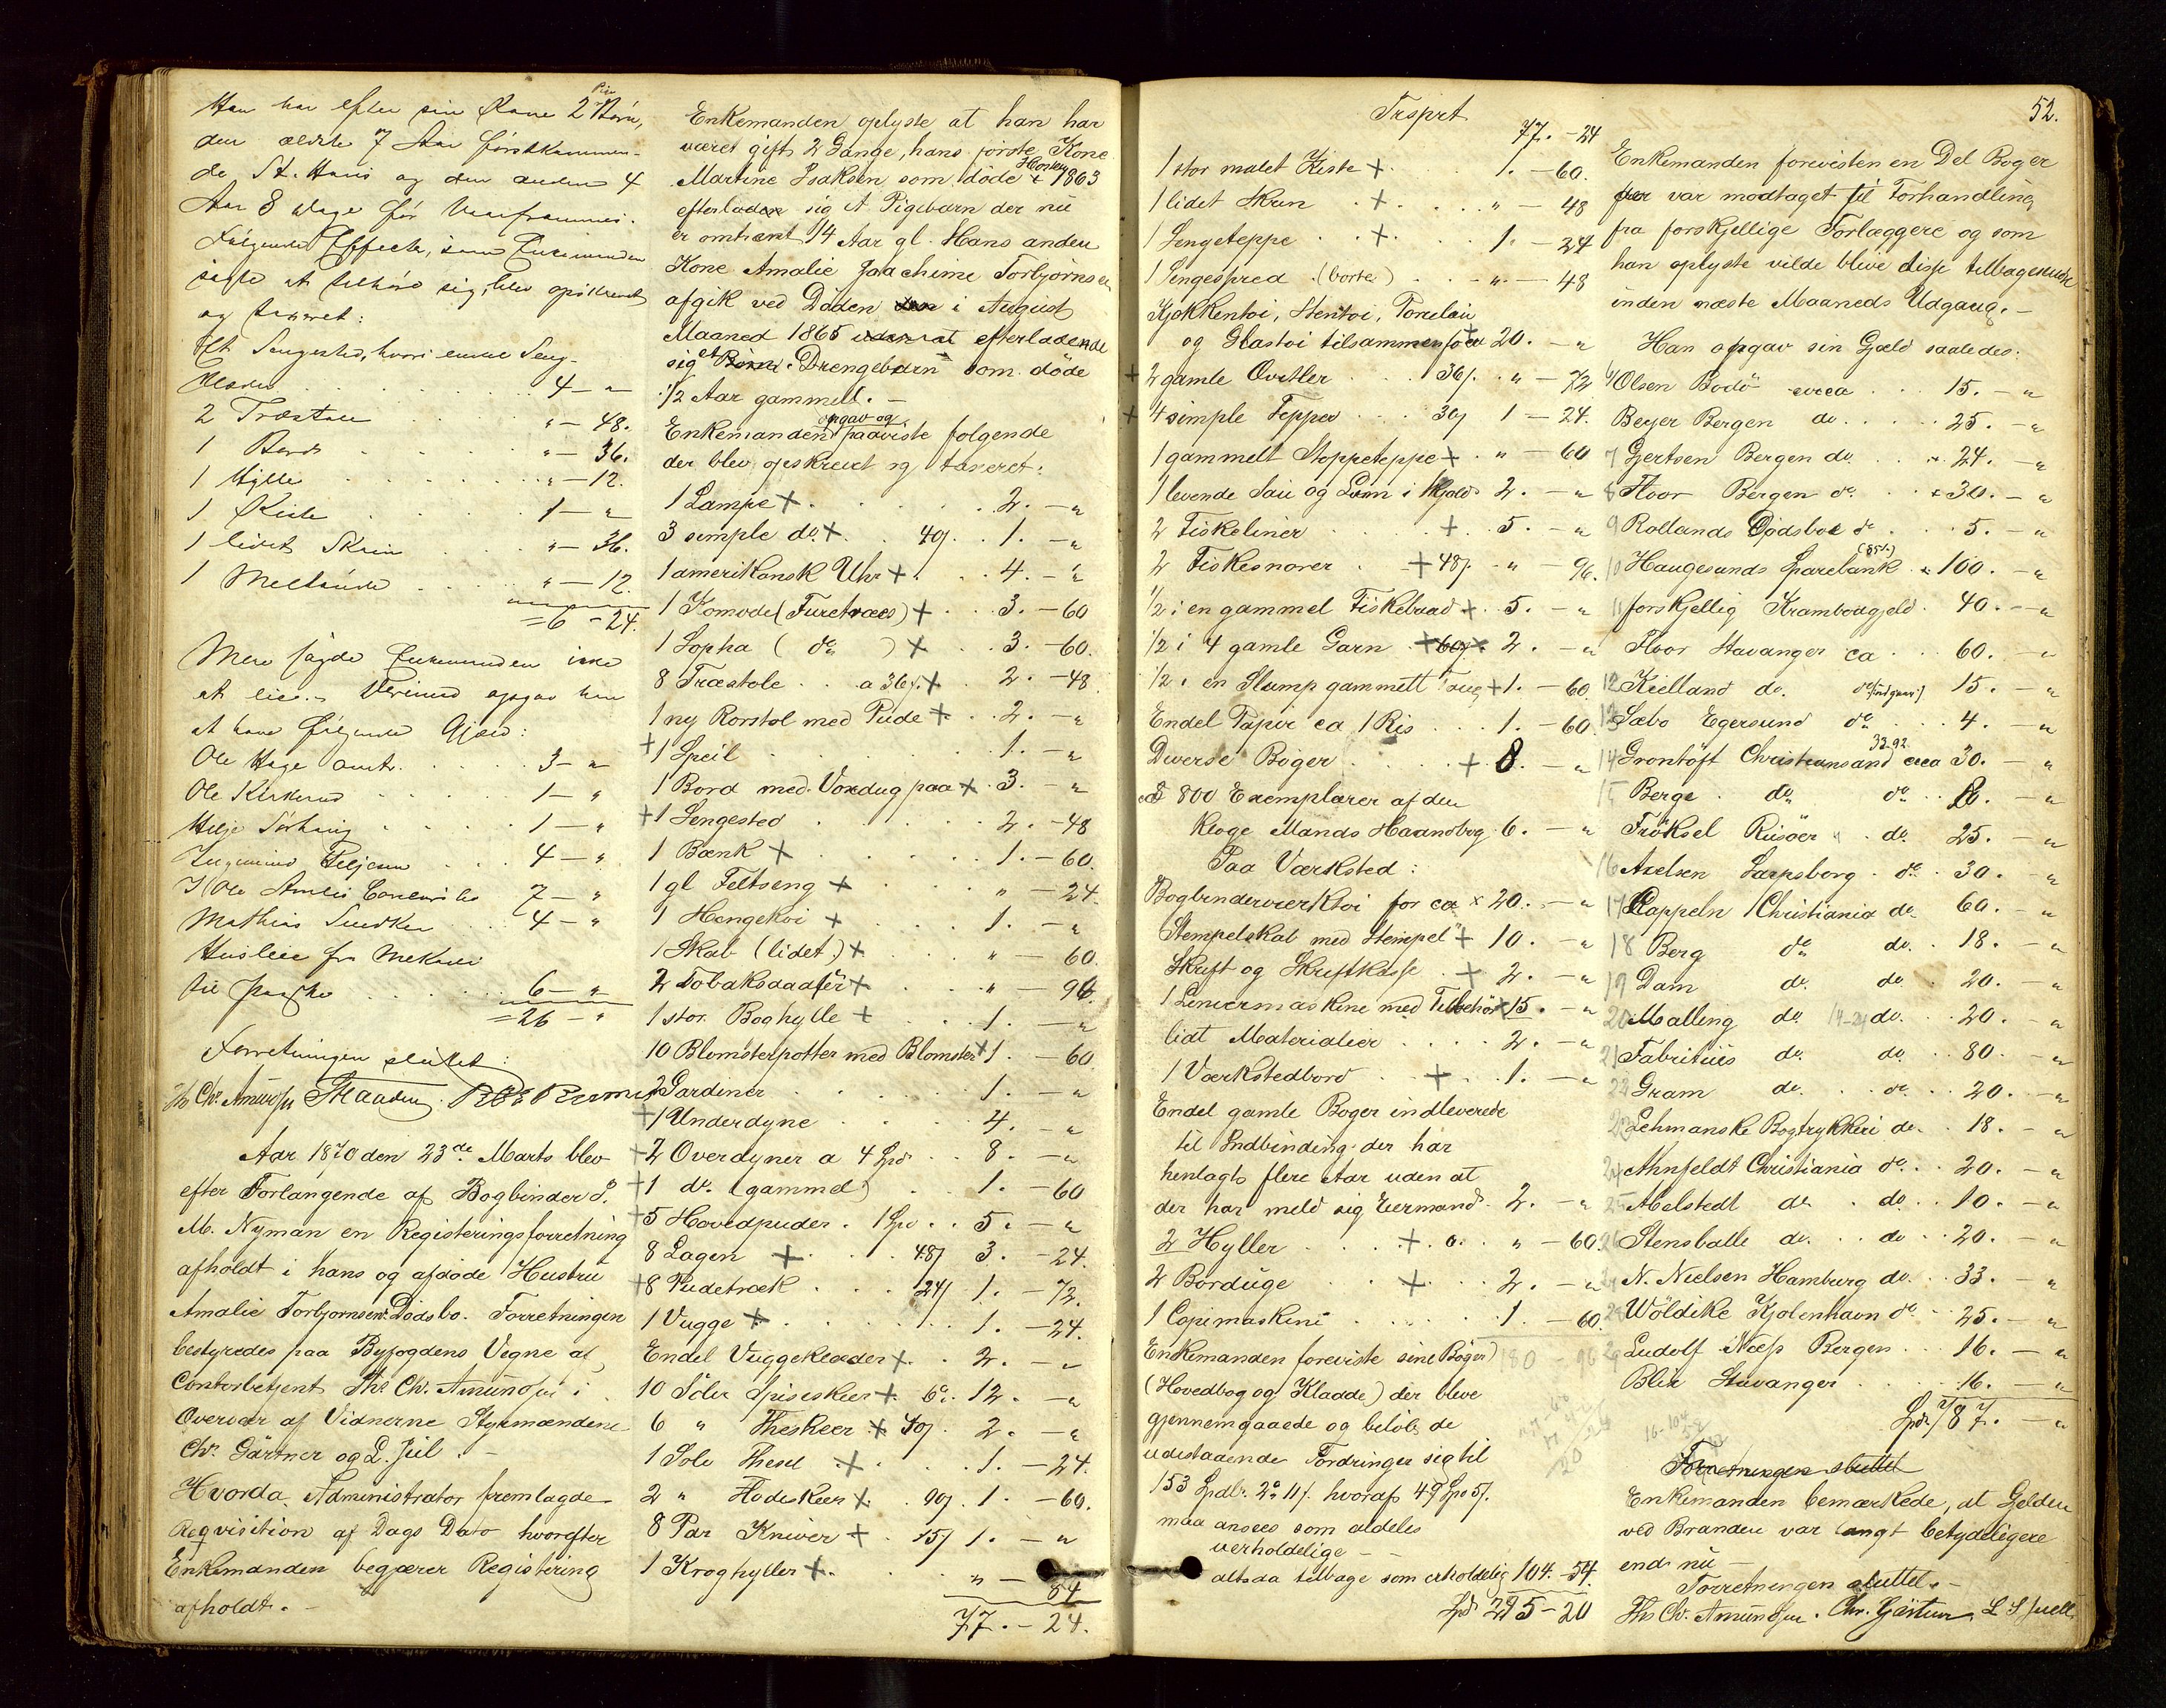 Han har efter sin Kone 2 Pigebörn,
den ældste 7 Aar förstkommen-
de St. Hans og den anden 4
Aar 8 Dage för Vaarfrumes.
Følgende Effecter, som Enkemanden
sagde at tilhöre sig, blev opskrevet
og taxeret:
Et Sengested, hvori endeel Seng-
klæder . . . 4 – "
2 Træstole . . " – 48.
1 Bord . . . " – 36.
1 Hylle . . . " – 12.
1 Kiste . . . 1 – "
1 lidet Skrin . . " – 36.
1 Meltönde . . " – 12.
= 6 – 24.
Mere sagde Enkemanden ikke
at eie. Derimod opgav han
at have følgende Gjæld:
Ole Hage . . . 3 – "
Ole . . . 1 – "
. . . 1 – "
. . . 4 – "
7 – "
Mathias . . 4 – "
Husleie fra
til Paaske . . . 6 – "
= 26 – "
Forretningen sluttet:
Ths Chr. Amundsen
Aar 1870 den 23de Marts blev
efter Forlangende af Bogbinder O.
M. Nyman en Registeringsforretning
afholdt i hans og afdöde Hustru
Amalie Torbjornsens Dödsbo. Forretningen
bestyredes paa Byfogdens Vegne af
Contorbetjent Ths Chr. Amundsen i
Overvær af Vidnerne Styrmændene
Chr. Gärtner og L. Juel. –
Hvorda Administrator fremlagde
Reqvisition af Dags Dato hvorefter
Enkemanden begjærer Registering
afholdt. –
Enkemanden oplyste at han har
været gift 2 Gange, hans förste Kone
Martine Isaksen som döde Höstn 1863
efterladen sig et Pigebarn der nu
er omtrent 14 Aar gl. Hans anden
Kone Amalie Joachime Torbjörnsen
afgik ved Döden i August
Maaned 1865 efterladende
sig et Drengebarn som döde
1/2 Aar gammel. –
Enkemanden opgav og paaviste folgende
der blev opskrevet og taxeret:
1 Lampe + . . . 2. – "
3 simple do. + . . 40 . . 1. – "
1 amerikansk Uhr + . . 4. – "
1 Komode (Furetræes) + . . 3. – 60
1 Sopha ( do ) + . . 3. – 60.
8 Træstole . . a 36 + 2. – 48
1 ny Rorstol med Pude + . . 2. – "
+ 1 Speil . . . 1. – "
1 Bord med Voxdug paa + . 3. – "
+ 1 Sengested . . . 2. – 48
1 Bænk + . . . 1. – 60.
1 gl Feltseng + . . " – 24.
1 Hængekoi + . . 1. – "
1 Skab (lidet) + . . " – 60.
2 Tobaksdaaser + . . " – 96.
1 stor Boghylle + . . 1. – "
10 Blomsterpotter med Blomster + 1. – 60.
2 Gardiner . . . 1. – "
+ 1 Underdyne . . . 4. – "
+ 2 Overdyner a 4 Spd . . 8. – "
+ 1 do. (gammel) . . 1. – 60
+ 5 Hovedpuder . 1 Spd . . 5. – "
8 Lagen + . . . 48 3. – 24.
+ 8 Pudetræk . . . 24 1. – 72.
1 Vugge + . . . 1. – 24.
Endel Vuggeklæder + . . 2. – "
10 Sölv Spiseskeer + 6 . 12. – "
6 " Theskeer + 40 . 2. – "
1 Sölv Thesil + . . . 1. – 24.
2 " Flödeskeer + . 90 . 1. – 60.
8 Par Kniver + . 15 1. – "
1 Kroghylle + . . " – 54
77. – 24.
52.
Trsprt 77. – 24
1 stor malet Kiste + . . 1. – 60.
1 lidet Skrin . + . . " – 48
1 Sengeteppe . . + . . 1. – 24
1 Sengespred . (borte) . . " – 48
Kjøkkentoi, Stentoi, Porcelain
og Glastoi tilsammen for + 20. – "
+ 2 gamle Overtler . . 36 . " – 72
+ 4 simple Tepper . . 30 1 – 24.
1 gammelt Stoppeteppe + . " – 60
1 levende Saue og Lam i Kjold 2. – "
2 Fiskeliner . . + . 5. – "
2 Fiskesnorer . + 48 . " – 96.
1/2 i en gammel Fiskebaad + . 5. – "
1/2 i 4 gamle Garn . + 60 2. – "
1/2 i en Slump gammelt Taug + 1. – 60.
Endel Papir ca 1 Ris . . 1. – 60.
Diverse Böger . . . + 8. – "
ca 800 Exemplarer af den
kloge Mands Haandbog . 6. – "
Paa Værksted:
Bogbinderværktoi for ca x 20. – "
Stempelskab med Stempel + 10. – "
Skrift og Skriftkasse . + 2. – "
1 Liniermaskine med Tilbehör + 15. – "
lidt Materialier . . . 2. – "
1 Værkstedbord . + . 1. – "
Endel gamle Boger indleverede
til Indbinding der har
henlagt flere Aar uden at
der har meld sig Eiermand . 2. – "
2 Hyller . . . + . o. . " – 60.
2 Borduge . . + . . 2. – "
1 Copimaskine . . . 1. – 60.
180 – 96
Enkemanden foreviste sine Böger
(Hovedbog og Kladde) der bleve
gjennemgaaede og belöb de
udestaaende Fordringer sig til
153 Spdlr. 2 11 hvoraf 49 Spd
maa ansees som aldeles
uerholdelige –
altsaa tilbage som erholdelig 104. – 54.
Spd 295 – 20
Enkemanden forevisten en Del Boger
der var modtaget til Forhandling
fra forskjellige Forlæggere og som
han oplyste vilde blive disse tilbagesendt
inden næste Maaneds Udgang. –
Han opgav sin Gjæld saaledes:
Olsen Bodö circa . . 15. – "
Beyer Bergen do. . . . 25. – "
7 Gjertsen Bergen do. . . 24. – "
8 Floor Bergen do . . 30. – "
9 Rollands Dödsboe do . . 5. – "
10 Haugesunds Sparebank 100. – "
11 forskjellig Krambodgjeld . 40. – "
Floor Stavanger ca . . 60. – "
12 Kielland do. do 15. – "
13 Sæbo Egersund do . . 4. – "
14 Grontöft Christiansand circa 30. – "
33.92
15 Berge . do do . – "
Fröksel Risöer . do. 25. – "
16 Axelsen Sarpsborg . do . 30. – "
17 Cappeln Christiania do. 60. – "
18 Berg do do. . 18. – "
19 Dam do. do. . 20. – "
20 Malling do. do. . 20. – "
21 Fabritius do. do. . 80. – "
22 Gram do. . do . . 20. – "
23 Lehmanske Bogtrykkeri do. . 18. – "
24 Ahnfeldt Christiania do . . 20. – "
25 Abelstedt do. . do . . 10. – "
26 Stensballe do. . . do . . 20. – "
27 N. Nielsen Hamburg do. . . 33. – "
28 Wöldike Kjobenhavn do . . 25. – "
29 Ludolf Næss Bergen . . . 16. – "
Blix Stavanger . . . 16. – "
Spd. 787. – "
Forretningen sluttet
Enkemanden bemærkede, at Gjelden
ved Branden var langt betydeligere
end nu –
Forretningen sluttet. –
Ths Chr. Amundsen. Chr. Gärtner L S Juell